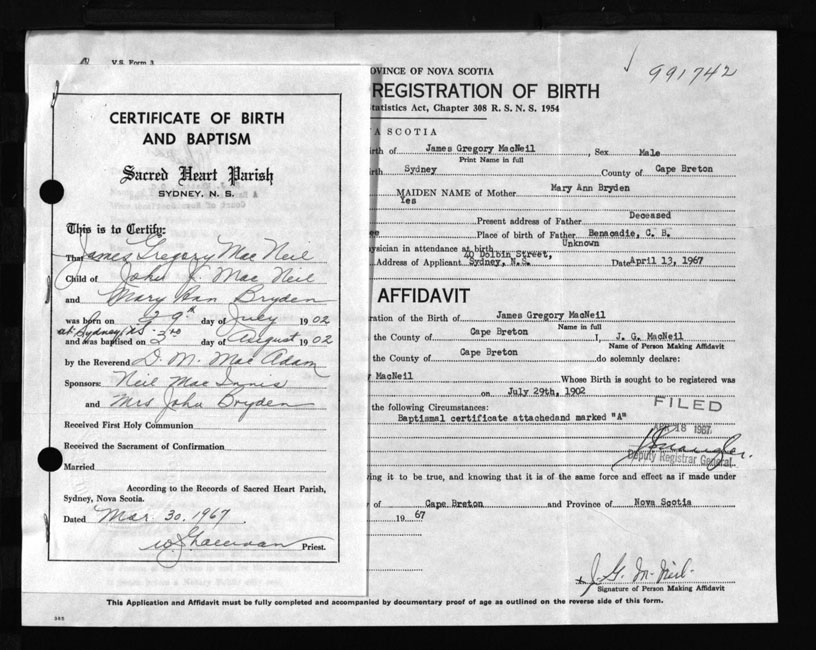 V.S. Form 3
CERTIFICATE OF BIRTH
AND BAPTISM
Sacred Heart Parish
SYDNEY, N. S.
This is to Certify:
That James Gregory Mac Neil
Child of John Mac Neil
and Mary Ann Bryden
was born on 29th day of July 1902
at Sydney N.S.
and was baptised on 3rd day of August 1902
by the Reverend D. M. Mac Adam
Sponsors: Neil Mac Innis
and Mrs John Bryden
Received First Holy Communion
Received the Sacrament of Confirmation
Married
According to the Records of Sacred Heart Parish,
Sydney, Nova Scotia.
Dated Mar. 30, 1967.
Priest.
OVINCE OF NOVA SCOTIA
991742
REGISTRATION OF BIRTH
tatistics Act, Chapter 308 R. S. N. S. 1954
A SCOTIA
irth of James Gregory MacNeil, Sex Male
Print Name in full
irth Sydney County of Cape Breton
MAIDEN NAME of Mother Mary Ann Bryden
Yes
Present address of Father Deceased
ee Place of birth of Father Benacadie, C. B.
ysician in attendance at birth Unknown
Address of Applicant 40 Dolbin Street, Sydney, N.S. Date April 13, 1967
AFFIDAVIT
ration of the Birth of James Gregory MacNeil
Name in full
the County of Cape Breton I, J. G. MacNeil
Name of Person Making Affidavit
the County of Cape Breton do solemnly declare:
MacNeil Whose Birth is sought to be registered was
on July 29th, 1902
the following Circumstances:
Baptismal certificate attachedand marked "A"
FILED
APR 18 1967
Deputy Registrar General
ing it to be true, and knowing that it is of the same force and effect as if made under
of Cape Breton and Province of Nova Scotia
1967
J. G. McNeil
Signature of Person Making Affidavit
This Application and Affidavit must be fully completed and accompanied by documentary proof of age as outlined on the reverse side of this form.